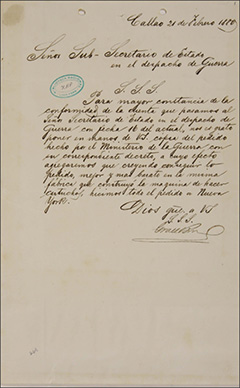 Callao 21 de Febrero 1880
Señor Sub-Secretario de Estado
en el despacho de Guerra
S. S. S.
Para mayor constancia de la
conformidad de la cuenta que pasamos al
Señor Secretario de Estado en el despacho de
Guerra con fecha 16 del actual, nos es grato
poner en manos de VS. copia del pedido
hecho por el Ministerio de la Guerra con
su correspondiente decreto, a cuyo efecto
agregaremos que creyendo conseguir lo
pedido, mejor y mas barato en la misma
fábrica que construyó la maquina de hacer
cartuchos, hicimos todo el pedido a Nueva
York.
Dios gûe a VS
S. S. S.